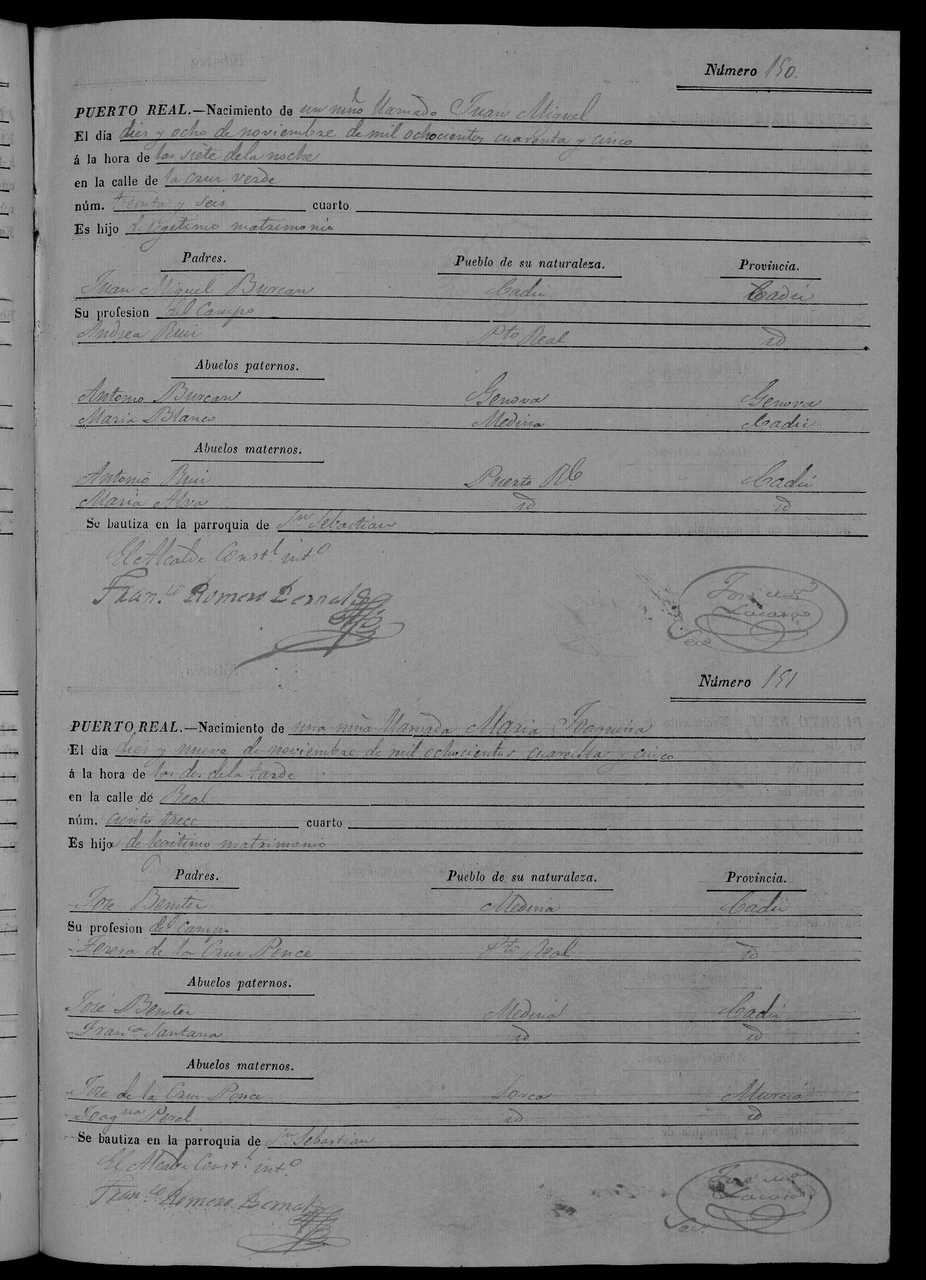 Número 150.
PUERTO REAL.—Nacimiento de un niño llamado Juan Miguel
El día diez y ocho de noviembre de mil ochocientos cuarenta y cinco
á la hora de las siete de la noche
en la calle de la Cruz verde
núm. treinta y seis cuarto
Es hijo legitimo matrimonio
Padres. Pueblo de su naturaleza. Provincia.
Juan Miguel Burcan Cadiz Cadiz
Su profesion del Campo
Andrea Ruiz Pto Real id
Abuelos paternos.
Antonio Burcan Genova Genova
Maria Blanco Medina Cadiz
Abuelos maternos.
Antonio Ruiz Puerto Rl. Cadiz
Maria Alva id id
Se bautiza en la parroquia de Sn Sebastian
El Alcalde Constl. into
Fran.co Romero Bernal
José
Sec
Número 151
PUERTO REAL.—Nacimiento de una niña llamada Maria
El día diez y nueve de noviembre de mil ochocientos cuarenta y cinco
á la hora de las dos de la tarde
en la calle de Real
núm. ciento trece cuarto
Es hija de legitimo matrimonio
Padres. Pueblo de su naturaleza. Provincia.
José Benitez Medina Cadiz
Su profesion del Campo
Teresa de la Cruz Ponce Pto Real id
Abuelos paternos.
José Benitez Medina Cadiz
Franca Santana id id
Abuelos maternos.
José de la Cruz Ponce Lorca Murcia
Joaqna id id
Se bautiza en la parroquia de Sn Sebastian
El Alcalde Constl. into
Fran.co Romero Bernal
Sec.